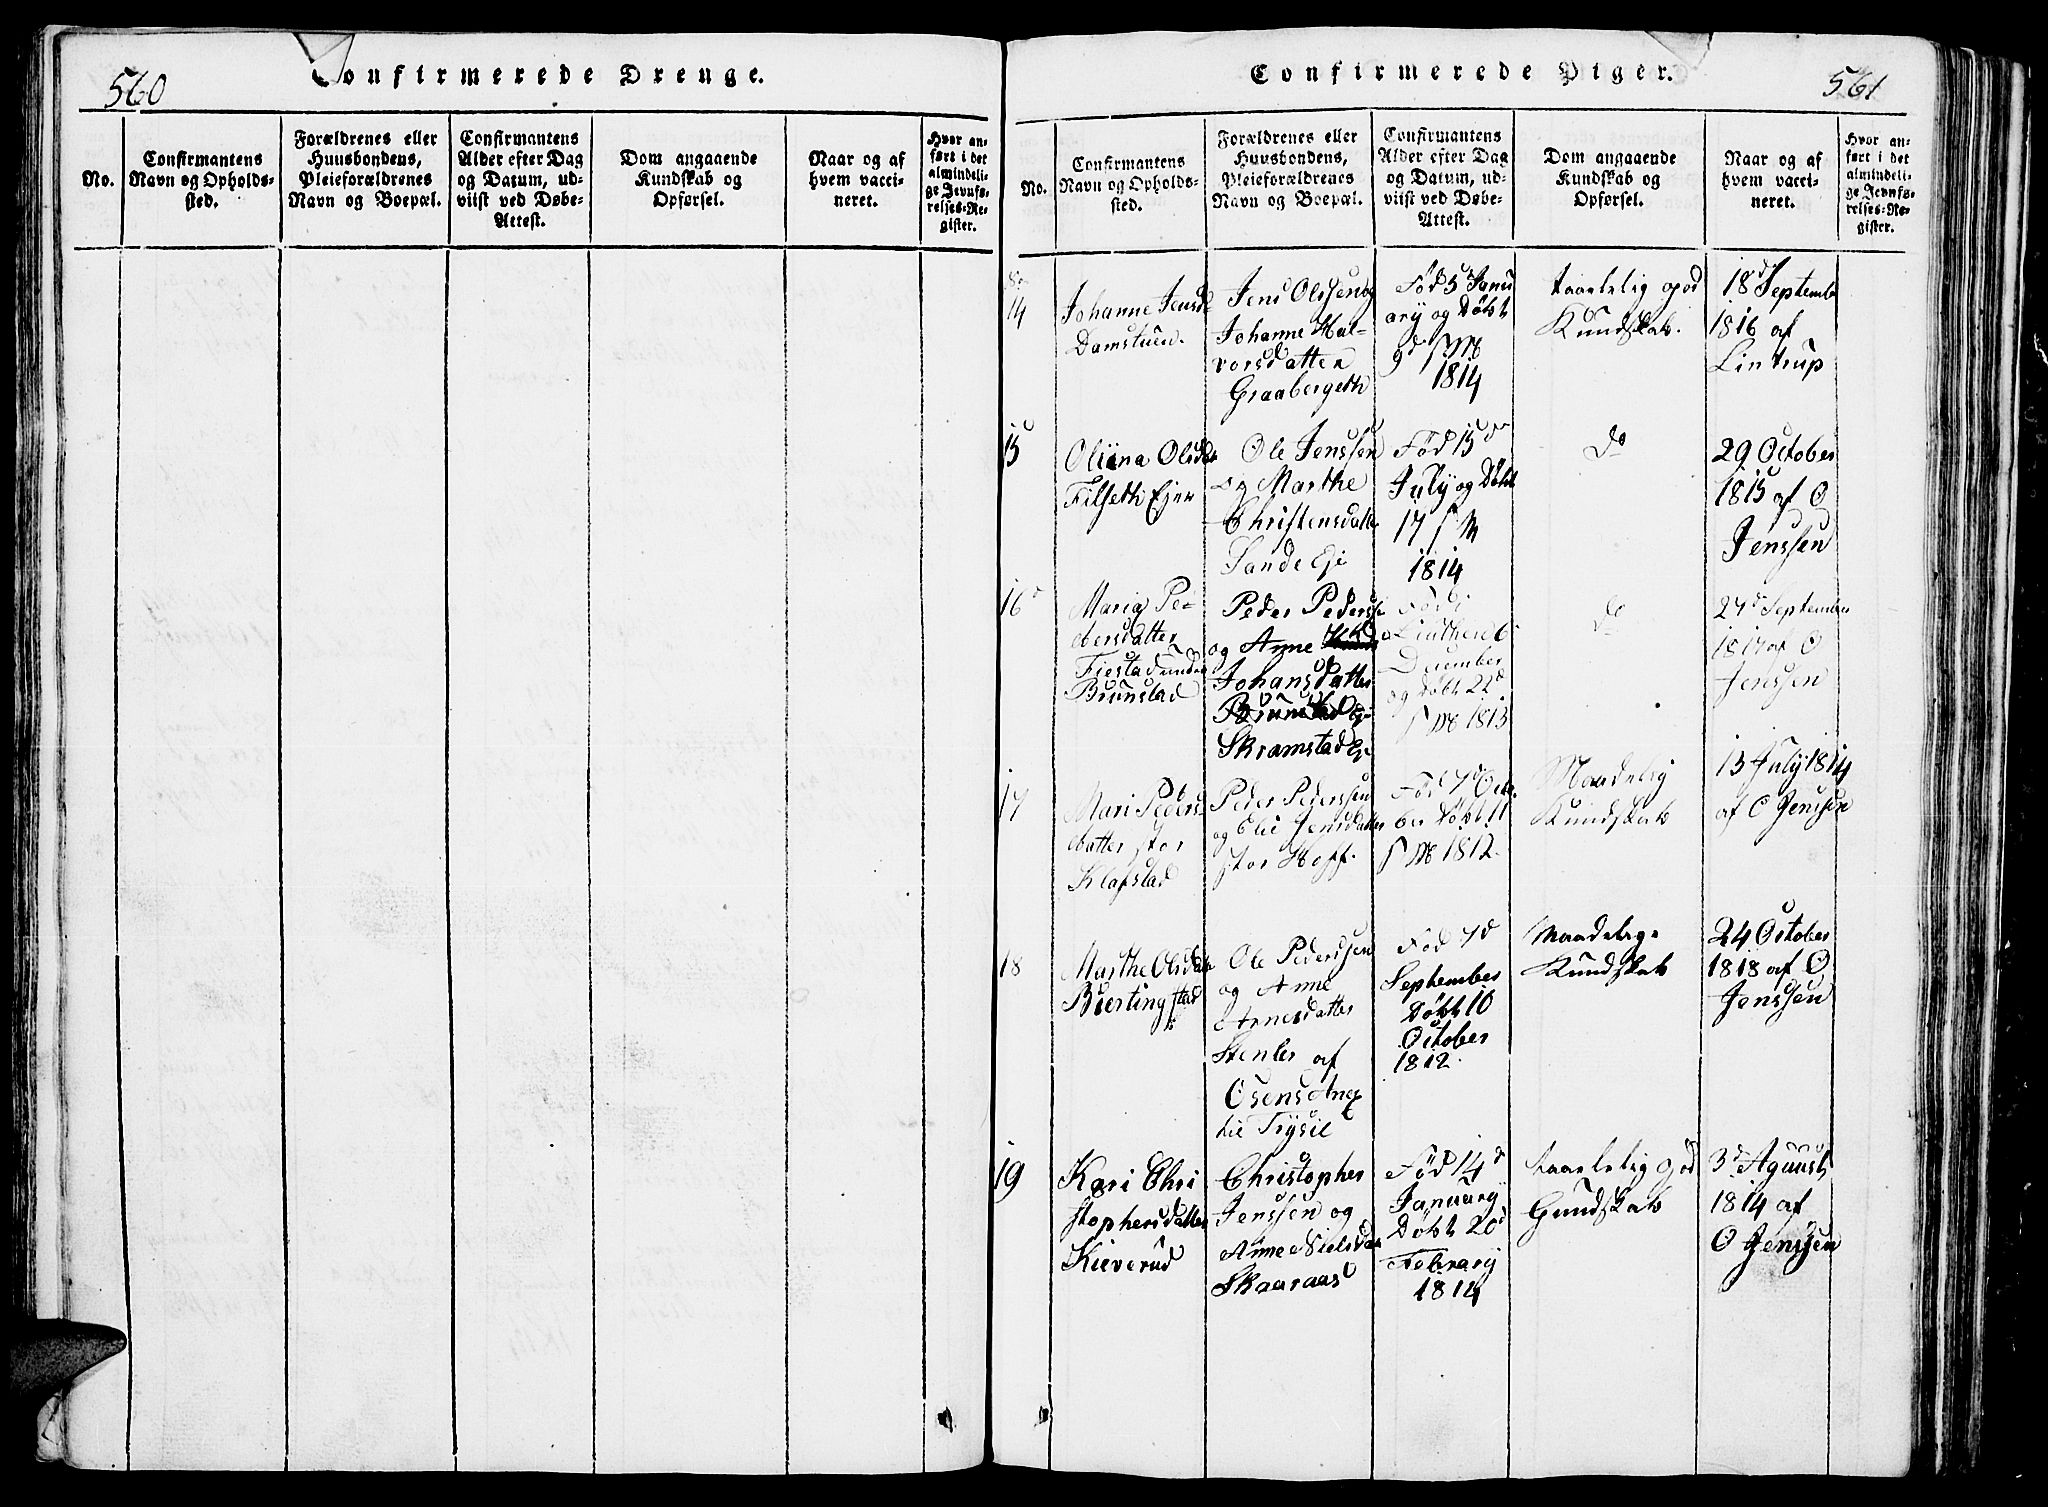 560
Confirmerede Drenge.
No.
Confirmantens
Navn og Opholds-
sted.
Forældrenes eller
Huusbondens,
Pleieforældrenes
Navn og Boepæl.
Confirmantens
Alder efter Dag
og Datum, ud-
viist ved Døbe-
Attest.
Dom angaaende
Kundskab og
Opførsel.
Naar og af
hvem vacci-
neret.
Hvor an-
ført i det
almindeli-
ge Jevnfø-
relses-Re-
gister.
Confirmerede Piger.
561
No.
Confirmantens
Navn og Opholds-
sted.
Forældrenes eller
Huusbondens,
Pleieforældrenes
Navn og Boepæl.
Confirmantens
Alder efter Dag
og Datum, ud-
viist ved Døbe-
Attest.
Dom angaaende
Kundskab og
Opførsel.
Naar og af
hvem vacci-
neret.
Hvor an-
ført i det
almindeli-
ge Jevnfø-
relses-Re-
gister.
No
14
Johanne Jensd
Damstuen.
Jens Olssen og
Johanne Hal-
vorsdatter
Graabergeth
Fød 5 Janu
ary og Døbt
9d s M
1814
taalelig god
Kundskab.
18d Septemb
1816 af
Lintrup
15
Oliina Olsdat
Filseth Ejer
Ole Jenssen
og Marthe
Christensdatte
Sande Eje
Fød 15de
July og Døbt
17 s M
1814
do
29 October
1815 af O
Jenssen
16
Maria Pe-
dersdatter
Fiestad under
Brunstad
Peder Pederss
og Anne
Johansdatter
Brunstad Ej
Skramstad Ej
Fød i
Linthered 6
December
og Døbt 22d
s M 1813
do
27d September
1817 af O
Jenssen
17
Mari Peders-
datter stor
Klafstad
Peder Pederssen
og Elie Jensdatter
stor Hoff.
Fød 7d Octo-
ber Døbt 11
s M 1812.
Maadelig
Kundskab
13 July 1814
af O Jenssen
18
Marthe Olsdat
Bierting stad
Ole Pederssen
og Anne
Arnesdatter
Stenler af
Osens Anex
til Trysil
Fød 7d
September
Døbt 10
October
1812.
Maadelige
Kundskab
24 October
1818 af O
Jenssen
19
Kari Chri
stophersdatter
Kieverud
Christopher
Jenssen og
Anne Nielsdat
Skaaraas
Fød 14d
January
Døbt 20d
Febrary
1814
taalelig god
Gundskab
3d Aguust
1814 af
O Jenssen